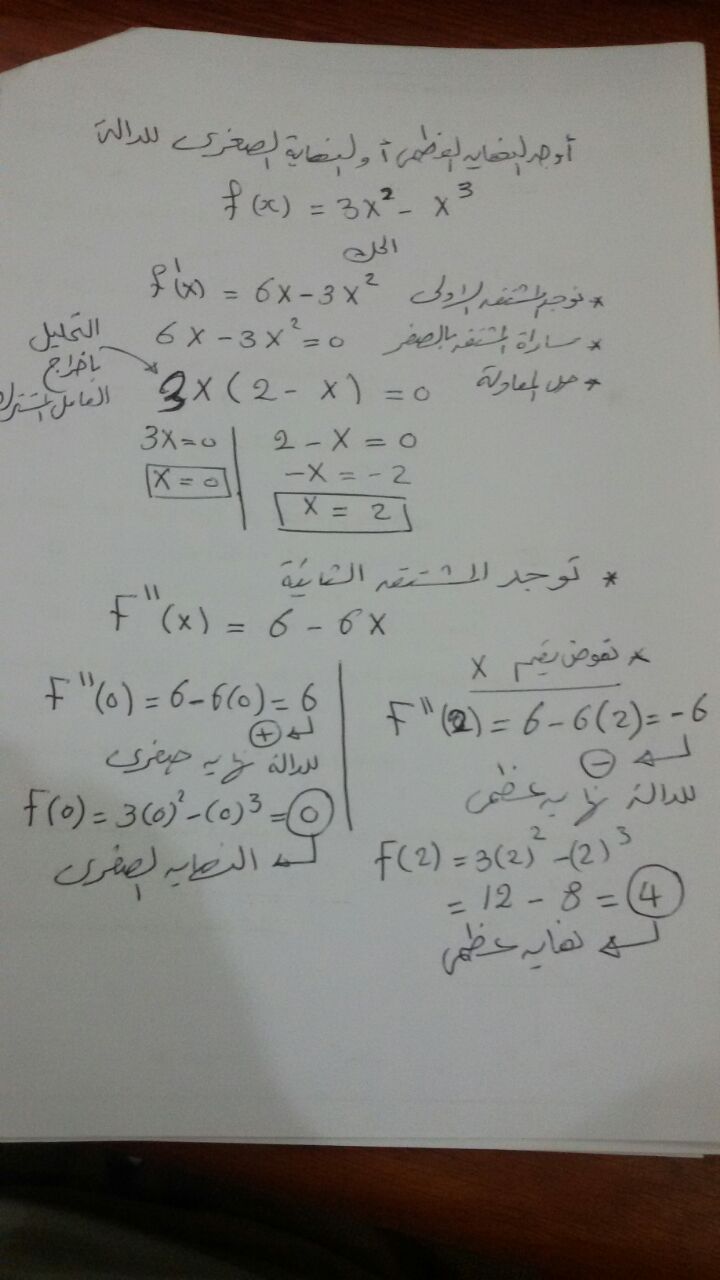 أوجد النهاية العظمى أو النهاية الصغرى للدالة
f(x) = 3x² - x³
الحل
* نوجد المشتقة الأولى f'(x) = 6x - 3x²
* مساواة المشتقة بالصفر 6x - 3x² = 0
* حل المعادلة 3x(2 - x) = 0
التحليل
بإخراج
العامل المشترك
3x = 0 | 2 - x = 0
x = 0 | -x = -2
x = 2
* نوجد المشتقة الثانية
F''(x) = 6 - 6x
* نعوض بقيم x
F''(2) = 6 - 6(2) = -6
⊖
للدالة نهاية عظمى
f(2) = 3(2)² - (2)³
= 12 - 8 = 4
نهاية عظمى
F''(0) = 6 - 6(0) = 6
⊕
للدالة نهاية صغرى
f(0) = 3(0)² - (0)³ = 0
النهاية الصغرى